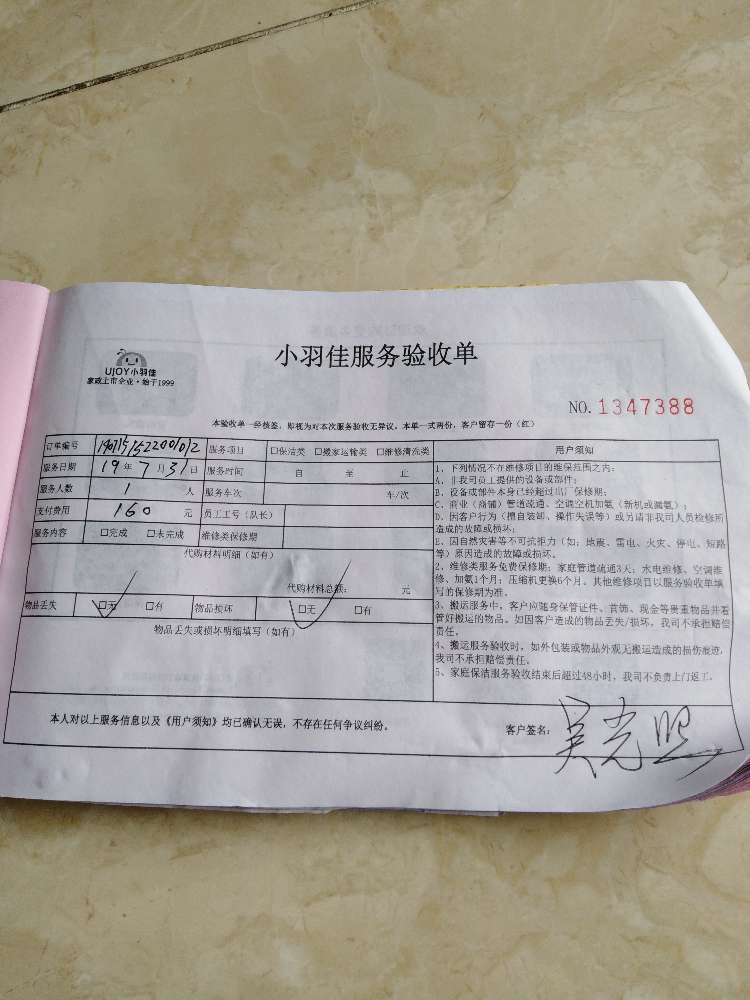 UJOY小羽佳
家政上市企业·始于1999
小羽佳服务验收单
NO. 1347388
本验收单一经核签,即视为对本次服务验收无异议。本单一式两份,客户留存一份(红)
订单编号 190715152200102 服务项目 □保洁类 □搬家运输类 □维修清洗类
服务日期 19年7月31日 服务时间 自 至 止
服务人数 1 人 服务车次 车/次
支付费用 160 元 员工工号(队长)
服务内容 □完成 □未完成 维修类保修期
代购材料明细(如有)
代购材料总额: 元
物品丢失 □无 □有 物品损坏 □无 □有
物品丢失或损坏明细填写(如有)
用户须知
1、下列情况不在维修项目的维保范围之内:
A、非我司员工提供的设备或部件;
B、设备或部件本身已经超过出厂保修期;
C、商业(商铺)管道疏通、空调空机加氨(新机或漏氨);
D、因客户行为(擅自装卸、操作失误等)或另请非我司人员检修所
造成的故障或损坏;
E、因自然灾害等不可抗拒力(如:地震、雷电、火灾、停电、短路
等)原因造成的故障或损坏。
2、维修类服务免费保修期:家庭管道疏通3天;水电维修、空调维
修、加氨1个月;压缩机更换6个月。其他维修项目以服务验收单填
写的保修期为准。
3、搬运服务中,客户应随身保管证件、首饰、现金等贵重物品并看
管好搬运的物品。如因客户造成的物品丢失/损坏,我司不承担赔偿
责任。
4、搬运服务验收时,如外包装或物品外观无搬运造成的损伤痕迹,
我司不承担赔偿责任。
5、家庭保洁服务验收结束后超过48小时,我司不负责上门返工。
本人对以上服务信息以及《用户须知》均已确认无误,不存在任何争议纠纷。
客户签名: 吴光照